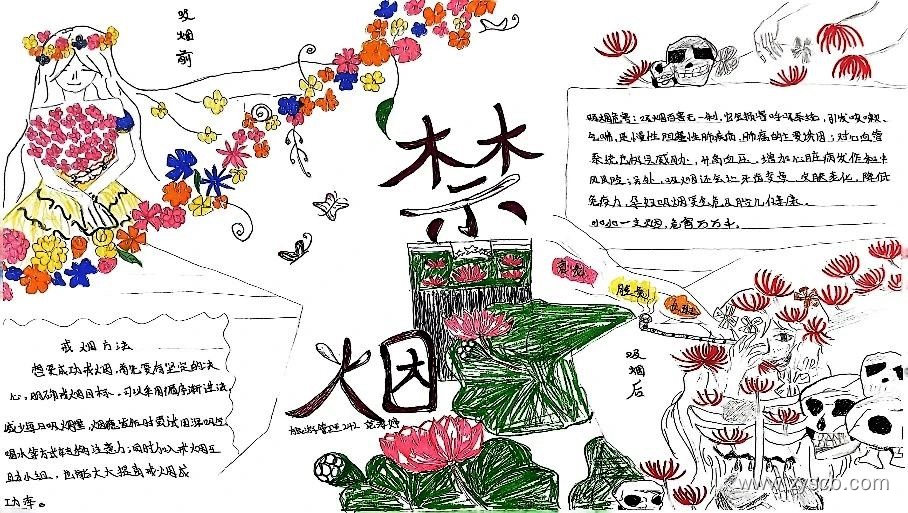 吸烟前
禁烟
吸烟危害:吸烟百害无一利,它会损害呼吸系统,引发咳嗽、
气喘,是慢性阻塞性肺疾病、肺癌的主要诱因;对心血管
系统也极具威胁,升高血压,增加心脏病发作和中
风风险;另外,吸烟还会让牙齿变黄、皮肤老化,降低
免疫力,孕妇吸烟更危及胎儿健康。
小小一支烟,危害万万千。
吸烟后
戒烟方法
想要成功戒烟,首先要有坚定的决
心,明确戒烟目标,可以采用循序渐进法
减少每日吸烟量,烟瘾发作时尝试用深呼吸
喝水等方式转移注意力;同时加入戒烟互
助小组,也能大大提高戒烟成
功率。
www.zyscb.com